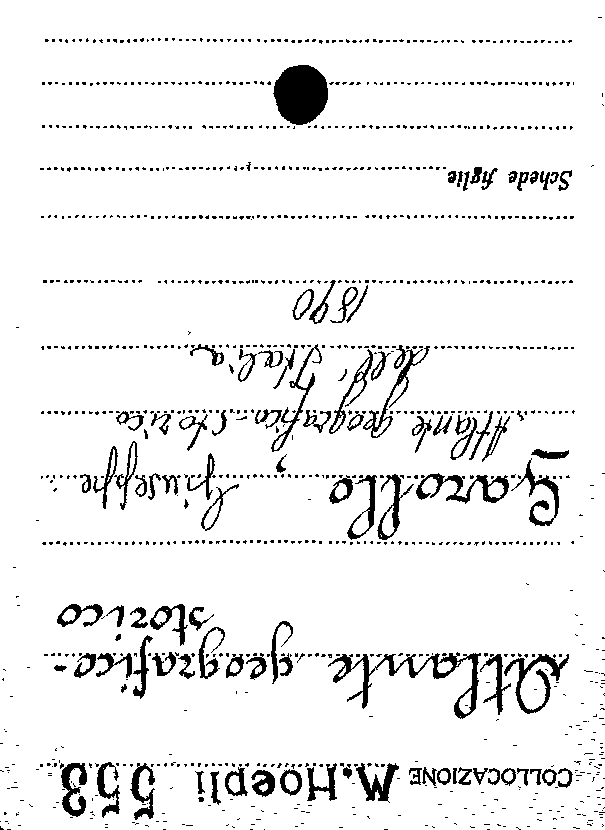 COLLOCAZIONE M. Hoepli 553
Atlante geografico-
storico
Garollo, Giuseppe.
Atlante geografico-storico
dell'Italia
1890
Schede figlie